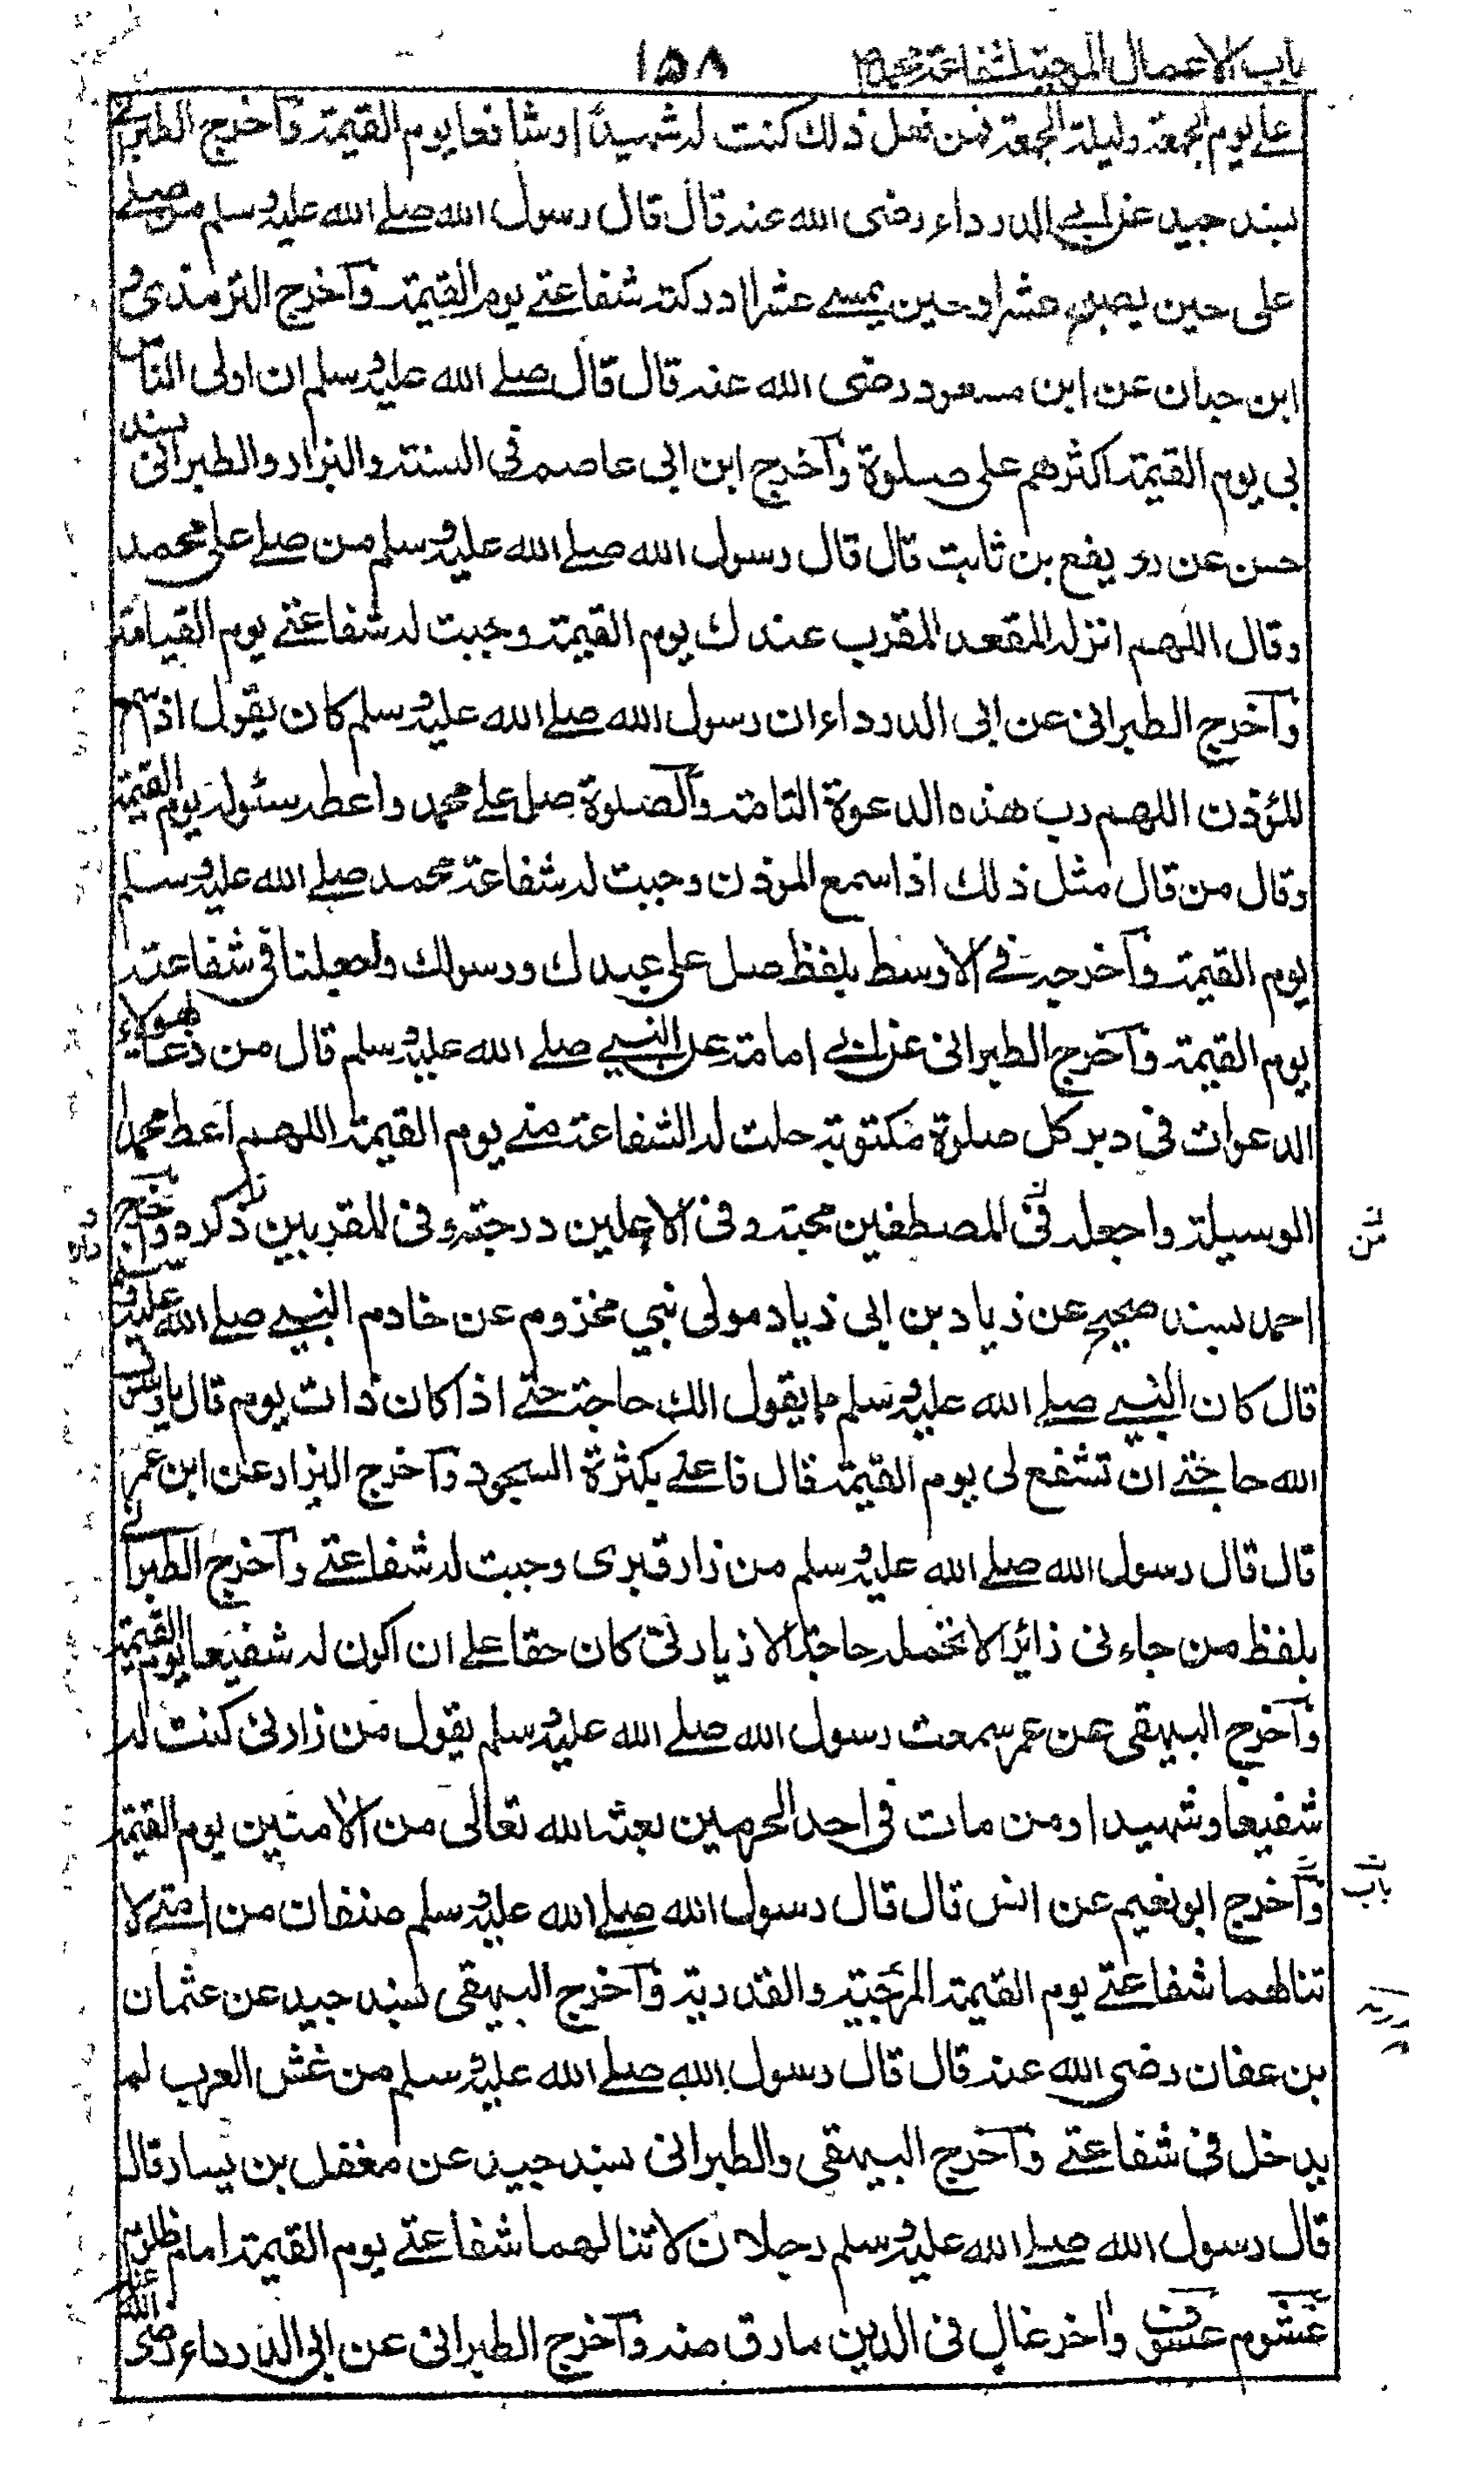 باب الاعمال الموجبة لشفاعته
١٥٨
على يوم الجمعة وليلة الجمعة فمن فعل ذلك كنت له شهيدا اوشافعا يوم القيمة وآخرج الطبراني
بسند جيد عن ابي الدرداء رضى الله عنه قال قال رسول الله صلے الله عليه وسلم من صلے
على حين يصبح عشرا وحين يمسے عشرا ادركته شفاعتے يوم القيمة وآخرج الترمذى و
ابن حبان عن ابن مسعود رضى الله عنه قال قال صلے الله عليه وسلم ان اولى الناس
بى يوم القيمة اكثرهم على صلوة وآخرج ابن ابى عاصم فى السنة والبزار والطبرانى بسند
حسن عن رويفع بن ثابت قال قال رسول الله صلے الله عليه وسلم من صلے على محمد
وقال اللهم انزله المقعد المقرب عندك يوم القيمة وجبت له شفاعتے يوم القيامة
وآخرج الطبرانى عن ابى الدرداء ان رسول الله صلے الله عليه وسلم كان يقول اذا سمع
المؤذن اللهم رب هذه الدعوة التامة والصلوة صل علے محمد واعطه سئوله يوم القيمة
وقال من قال مثل ذلك اذا سمع المؤذن وجبت له شفاعة محمد صلے الله عليه وسلم
يوم القيمة وآخرجه فے الاوسط بلفظ صل على عبدك ورسولك واجعلنا فى شفاعته
يوم القيمة وآخرج الطبرانى عن ابے امامة عن النبے صلے الله عليه وسلم قال من دعا بهولاء
الدعوات فى دبر كل صلوة مكتوبة حلت له الشفاعة منے يوم القيمة اللهم اعط محمدا
الوسيلة واجعله فى المصطفين محبته وفى الاعلين درجته وفى المقربين ذكر داره وآخرج
احمد بسند صحيح عن زياد بن ابى زياد مولى بنى مخزوم عن خادم النبے صلے الله عليه وسلم
قال كان النبے صلے الله عليه وسلم مما يقول الك حاجة حتے اذا كان ذات يوم قال يا رسول
الله حاجتے ان تشفع لى يوم القيمة قال فاعنے بكثرة السجود وآخرج البزار عن ابن عمر
قال قال رسول الله صلے الله عليه وسلم من زار قبرى وجبت له شفاعتے وآخرج الطبرانے
بلفظ من جاءنى زائرا لا تحمله حاجة الا زيارتى كان حقا علے ان اكون له شفيعا يوم القيمة
وآخرج البيهقى عن عمر سمعت رسول الله صلے الله عليه وسلم يقول من زارنى كنت له
شفيعا وشهيدا ومن مات فى احد الحرمين بعثه الله تعالى من الامنين يوم القيمة
وآخرج ابو نعيم عن انس قال قال رسول الله صلے الله عليه وسلم صنفان من امتے لا
تنالهما شفاعتے يوم القيمة المرجئة والقدرية وآخرج البيهقى بسند جيد عن عثمان
بن عفان رضى الله عنه قال قال رسول الله صلے الله عليه وسلم من غش العرب لم
يدخل فى شفاعتے وآخرج البيهقى والطبرانى بسند جيد عن معقل بن يسار قال
قال رسول الله صلے الله عليه وسلم رجلان لا تنالهما شفاعتے يوم القيمة امام ظلوم
غشوم عسوف واخر غال فى الدين مارق منه وآخرج الطبرانى عن ابى الدرداء رضى الله عنه